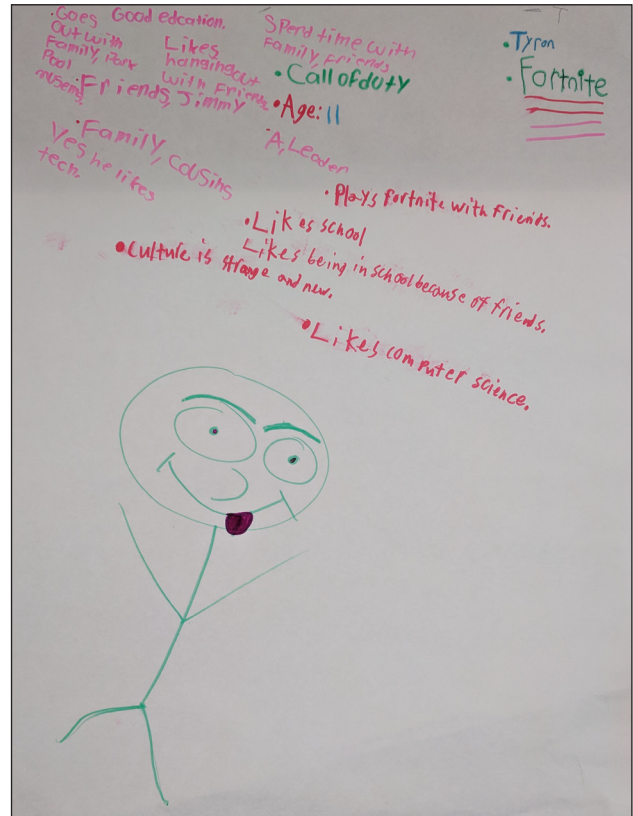 ·Goes
out with
Family, Park
Pool
musems
Good edcation.
Likes
hanging out
with Friends
·Friends, Jimmy
·Family, cousins
yes he likes
tech.
Spend time with
family, Friends
·Call of duty
·Age: 11
·A, Leader
·Tyron
·Fortnite
·Plays fortnite with friends.
·Likes school
Likes being in school because of friends.
·Culture is strange and new.
·Likes computer science.